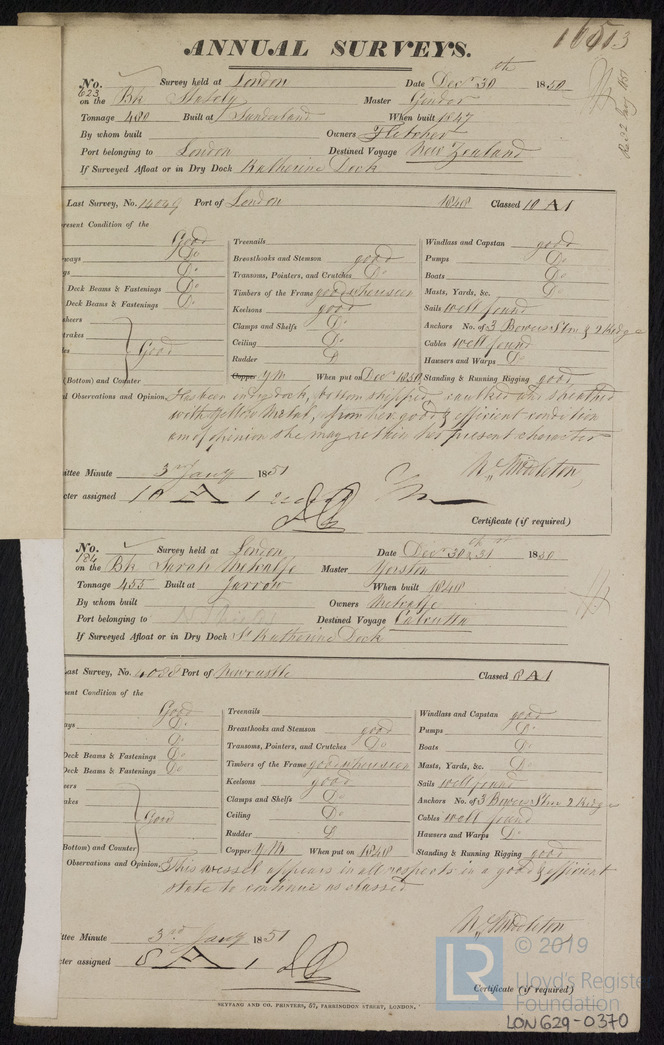 ANNUAL SURVEYS.
No. 623 Survey held at London Date Decr 30th 1850
on the Bk Master
Tonnage 480 Built at Sunderland When built 1847
By whom built Owners Fletcher
Port belonging to London Destined Voyage New Zealand
If Surveyed Afloat or in Dry Dock Katherine Dock
Last Survey, No. 14049 Port of London 1848 Classed 10 A 1
resent Condition of the
Good Treenails Windlass and Capstan good
ways Do Breasthooks and Stemson good Pumps Do
gs Do Transoms, Pointers, and Crutches Do Boats Do
Deck Beams & Fastenings Do Timbers of the Frame good Masts, Yards, &c. Do
Deck Beams & Fastenings Do Keelsons good Sails well found
sheers Clamps and Shelfs Do Anchors No. of 3 Bowers Stm & 2 Kedge
trakes Good Ceiling Do Cables well found
les Rudder Do Hawsers and Warps Do
(Bottom) and Counter Copper YM When put on Decr 1850 Standing & Running Rigging good
l Observations and Opinion, Has been in dry dock, bottom stripped, caulked and sheathed
with yellow metal, from her good & efficient condition
am of opinion she may retain her present character
ittee Minute 3rd Jany 1851 Middleton
cter assigned 10 A 1
Certificate (if required)
No. 184 Survey held at London Date Decr 30 & 31st 1850
on the Bk Sarah Metcalfe Master
Tonnage 455 Built at Jarrow When built 1848
By whom built Owners Metcalfe
Port belonging to N Shields Destined Voyage Calcutta
If Surveyed Afloat or in Dry Dock St Katherine Dock
Last Survey, No. Port of Newcastle Classed 8 A 1
sent Condition of the
Good Treenails Windlass and Capstan good
ays Do Breasthooks and Stemson good Pumps Do
Do Transoms, Pointers, and Crutches Do Boats Do
Deck Beams & Fastenings Do Timbers of the Frame good Masts, Yards, &c. Do
Deck Beams & Fastenings Do Keelsons good Sails well found
eers Clamps and Shelfs Do Anchors No. of 3 Bowers Stm 2 Kedges
akes Good Ceiling Do Cables well found
Rudder Do Hawsers and Warps Do
Bottom) and Counter Copper YM When put on 1848 Standing & Running Rigging good
Observations and Opinion, This vessel appears in all respects in a good & efficient
state to continue as classed
Middleton
ttee Minute 3rd Jany 1851
cter assigned 8 A 1
Certificate (if required)
SEYFANG AND CO. PRINTERS, 57, FARRINGDON STREET, LONDON.
© 2019
LR Lloyd's Register
Foundation
LON629-0370